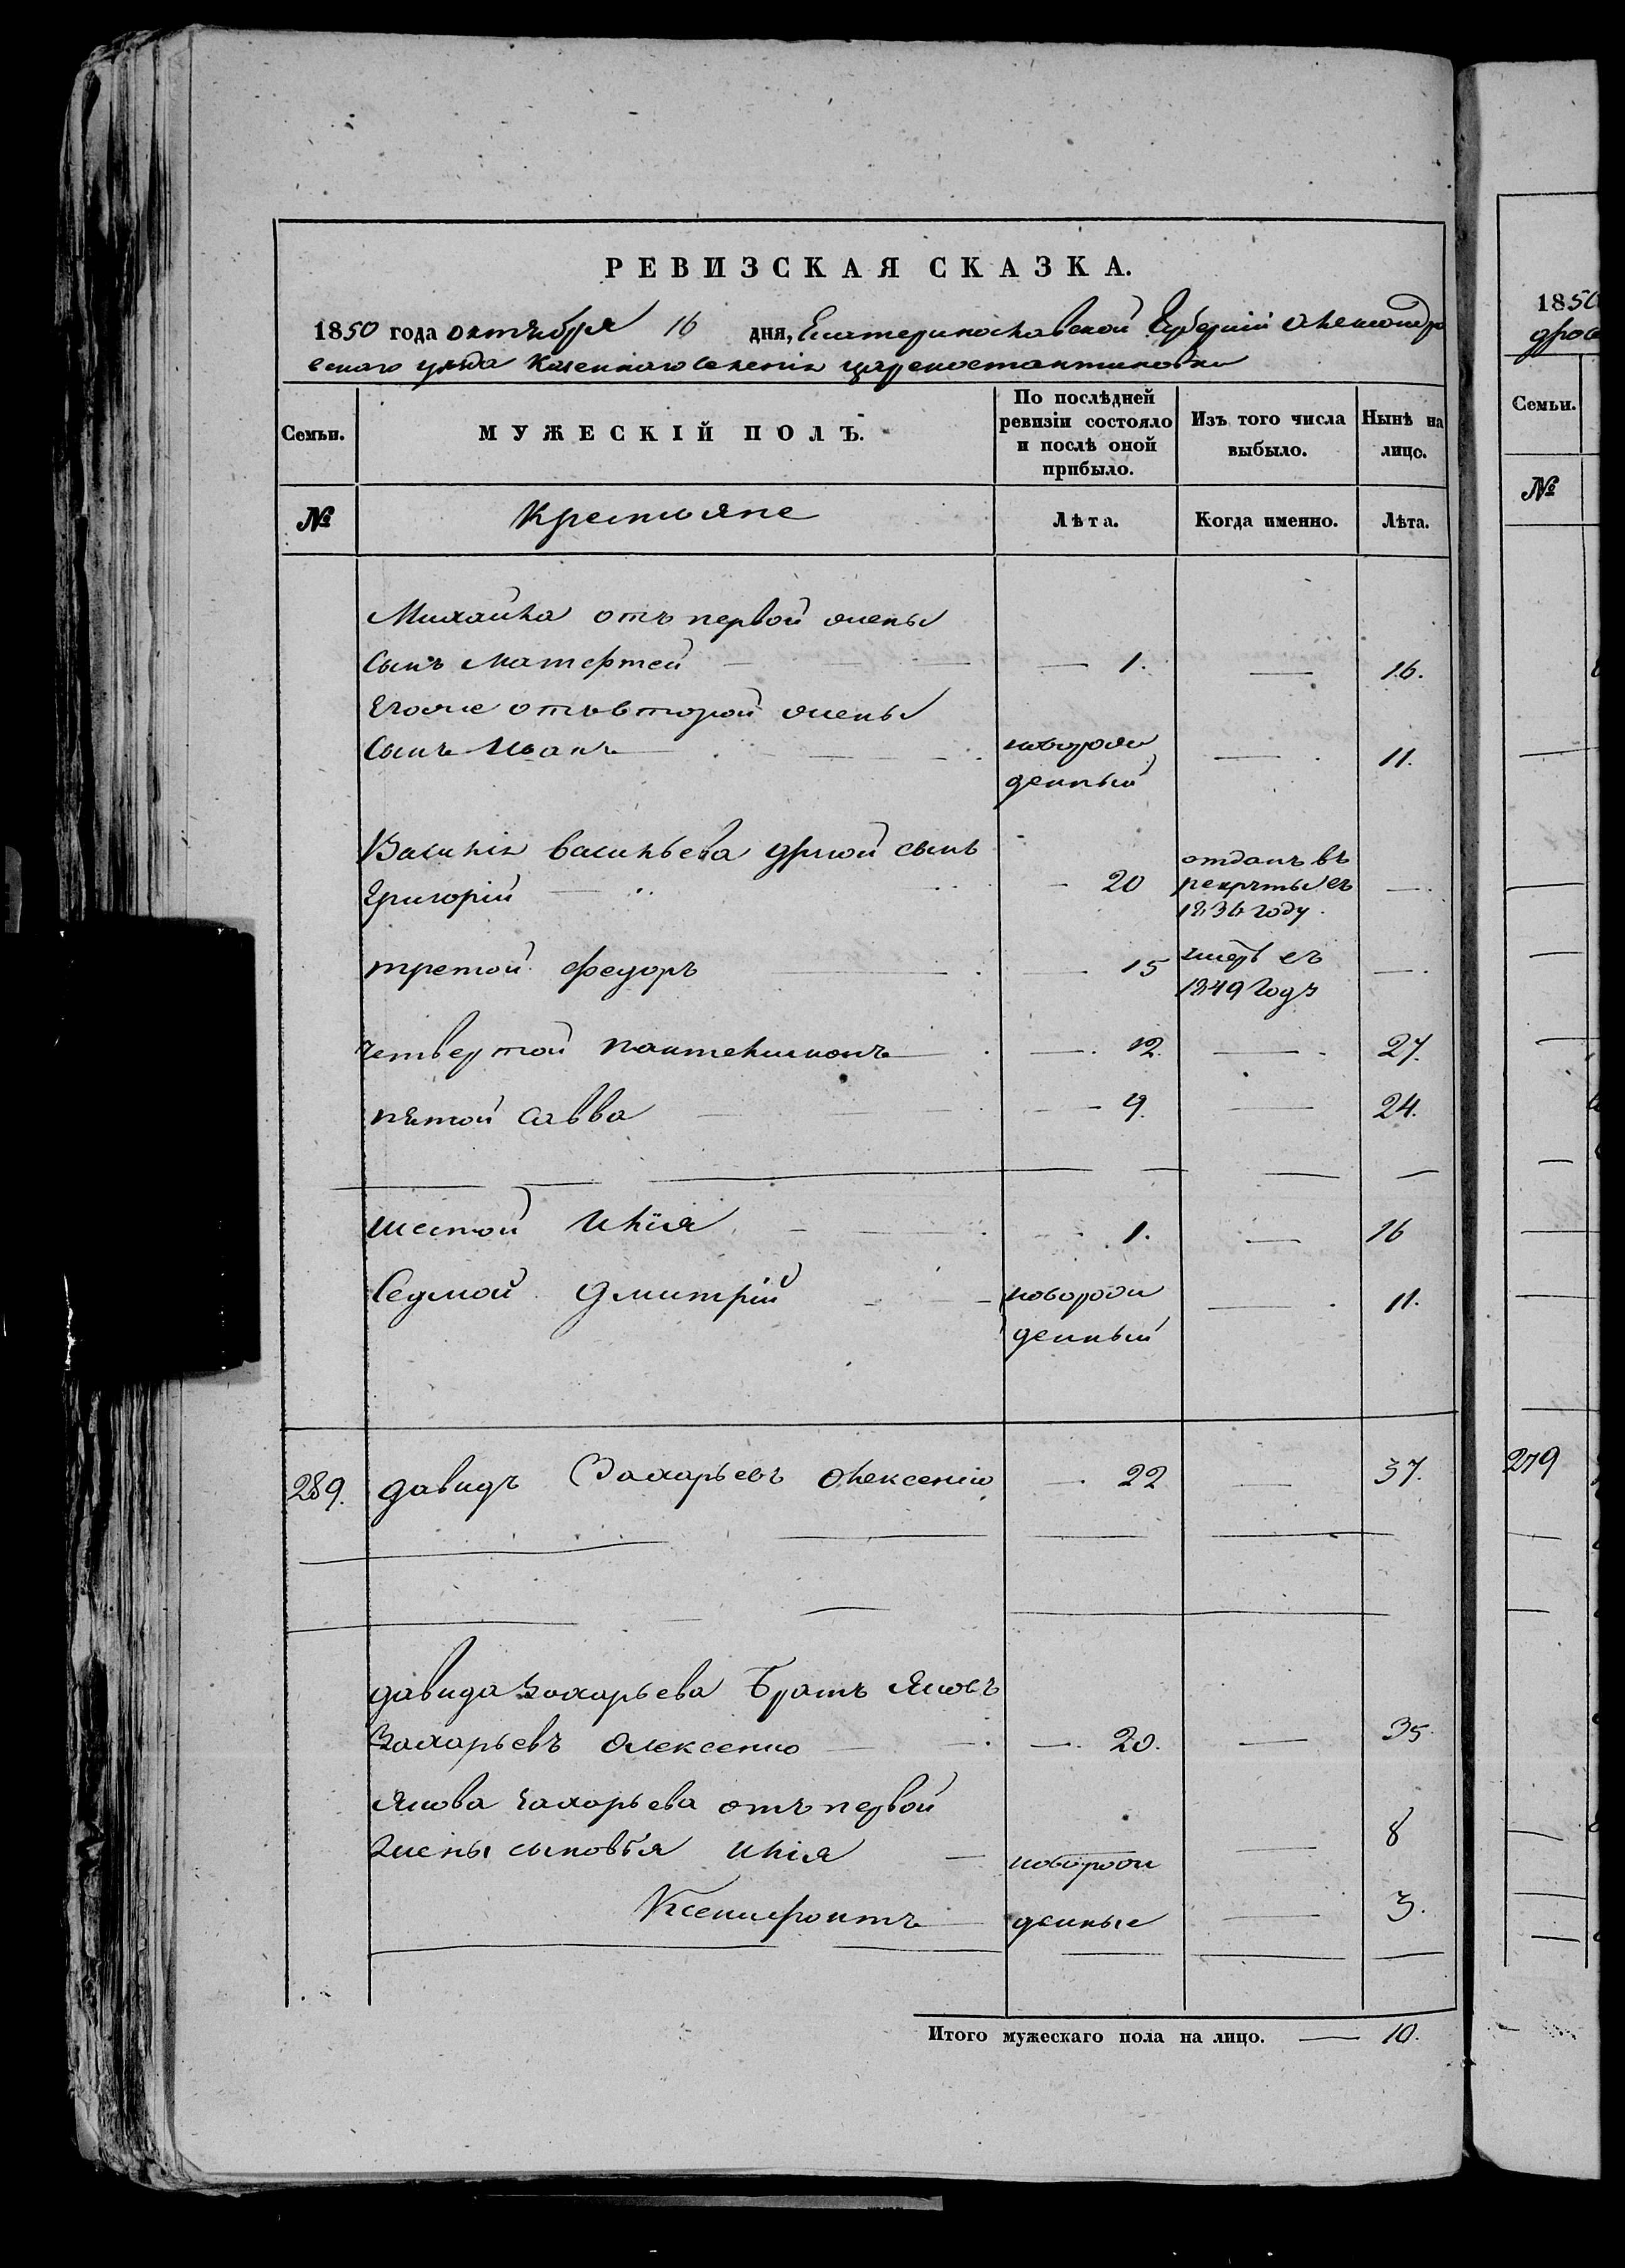 РЕВИЗСКАЯ СКАЗКА.
1850 года октября 16 дня, Екатеринославской Губернiи Александро
вскаго уезда Казеннаго селенiя Цареконстантиновки
Семьи. МУЖЕСКIЙ ПОЛЪ. По послѣдней ревизiи состояло и послѣ оной прибыло. Изъ того числа выбыло. Нынѣ на лицо.
№ Крестьяне Лѣта. Когда именно. Лѣта.
Михайла отъ первой жены
сынъ Матефтей — 1. — 16.
Егоже отъ второй жены
сынъ Иванъ — новорож — 11.
денный
Василiя Васильева другой сынъ отданъ въ
Григорiй — 20 рекруты въ —
1834 году.
третой Федоръ — 15 умеръ въ —
1849 году
четвертой Пантелимонъ — 12. — 27.
пятой Савва — 9. — 24.
шестой Илiя — 1. — 16
Седмой Дмитрiй — новорож — 11.
денный
289. Давидъ Захарьевъ Олексенко — 22 — 37.
Давида Захарьева Братъ Яковъ
Захарьевъ Олексенко — 20. — 35.
Якова Захарьева отъ первой
жены сыновья Илiя — новорож — 8
Ксенифонтъ — денные — 3.
Итого мужескаго пола на лицо. — 10.
1850
Семьи.
№
279